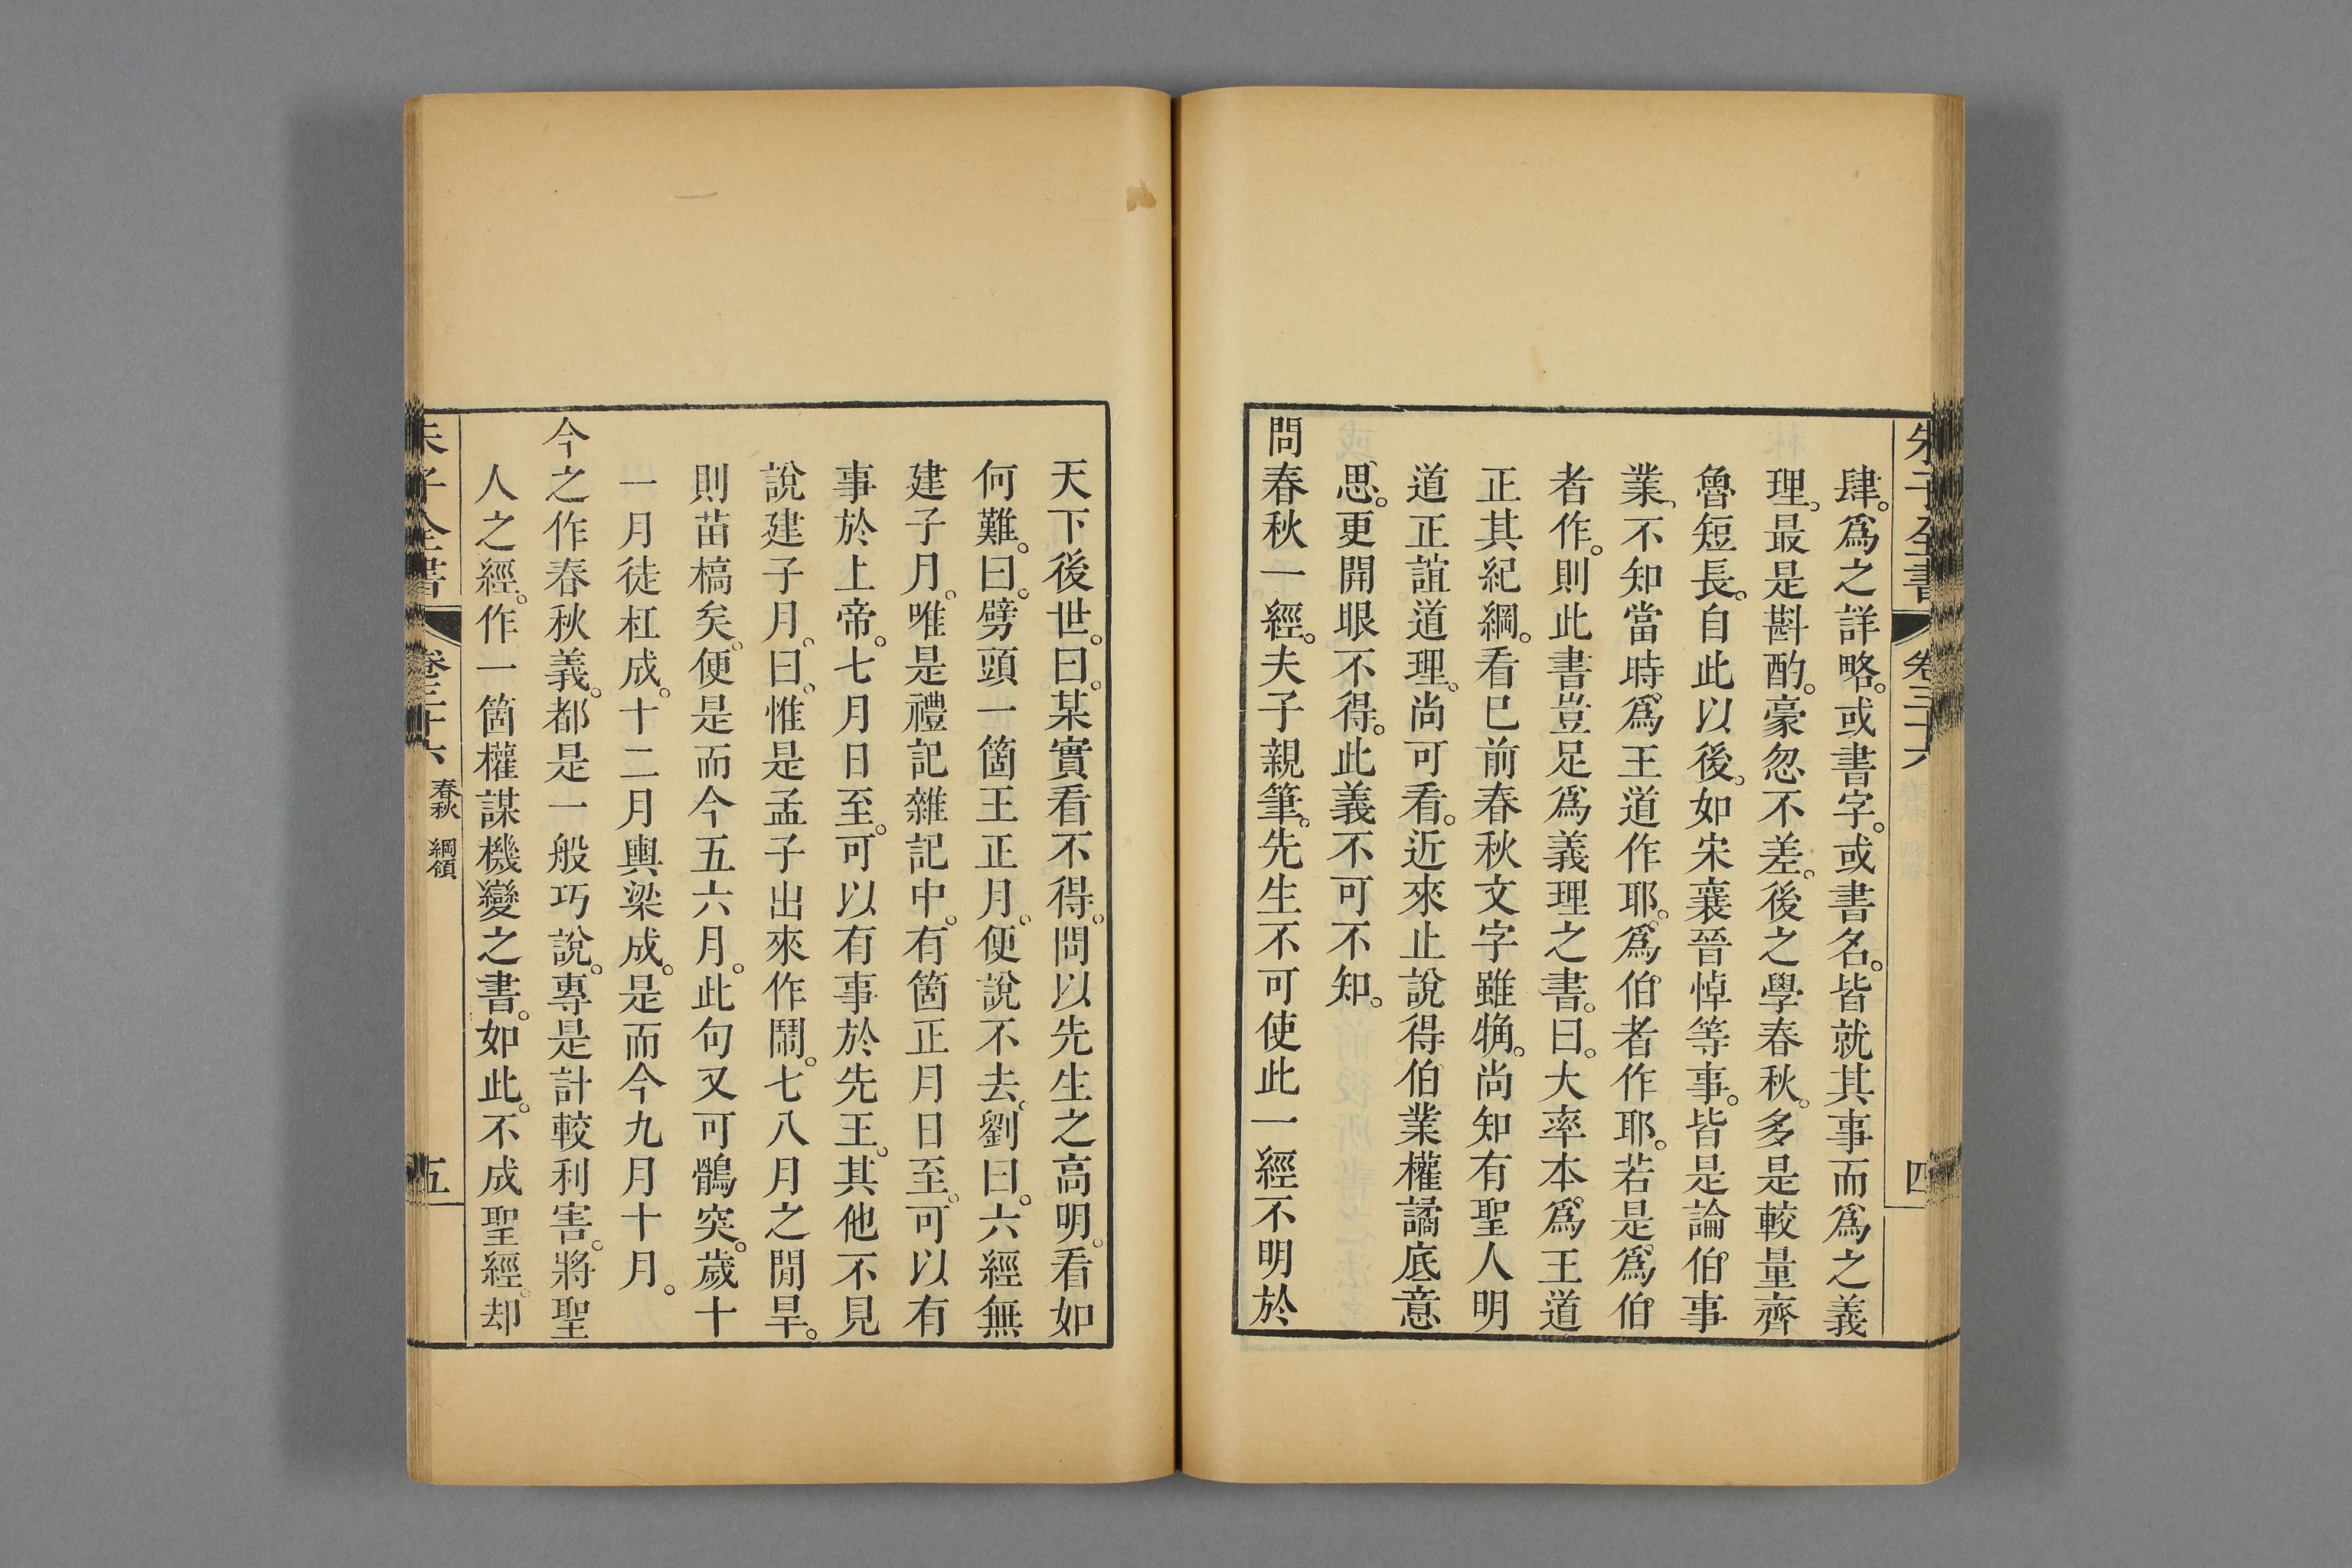 朱子全書 卷三十六 四
肆。爲之詳略。或書字。或書名。皆就其事而爲之義
理。最是斟酌。豪忽不差。後之學春秋。多是較量齊
魯短長。自此以後。如宋襄晉悼等事。皆是論伯事
業、不知當時爲王道作耶。爲伯者作耶。若是爲伯
者作。則此書豈足爲義理之書。曰。大率本爲王道
正其紀綱。看巳前春秋文字雖觕。尚知有聖人明
道正誼道理。尚可看。近來止說得伯業權譎底意
思。更開眼不得。此義不可不知。
問春秋一經。夫子親筆。先生不可使此一經不明於
天下後世。曰。某實看不得。問以先生之高明。看如
何難。曰。劈頭一箇王正月。便說不去。劉曰。六經無
建子月。唯是禮記雜記中。有箇正月日至。可以有
事於上帝。七月日至。可以有事於先王。其他不見
說建子月。曰。惟是孟子出來作鬧。七八月之閒旱。
則苗槁矣。便是而今五六月。此句又可鶻突。歲十
一月徒杠成。十二月輿梁成。是而今九月十月。
今之作春秋義。都是一般巧說。專是計較利害。將聖
人之經。作一箇權謀機變之書。如此。不成聖經。却
朱子全書 卷三十六 春秋 綱領 五